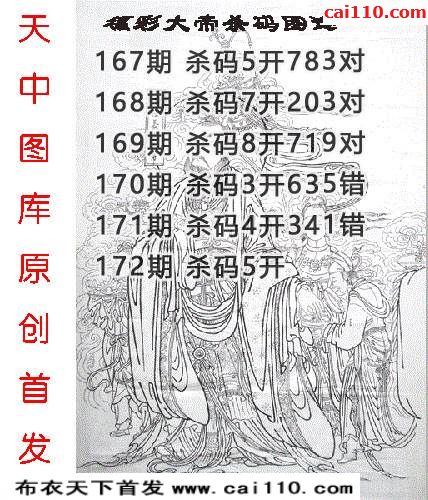 cai110.com
彩大帝杀码图
167期 杀码5开783对
168期 杀码7开203对
169期 杀码8开719对
170期 杀码3开635错
171期 杀码4开341错
172期 杀码5开
天中图库原创首发
布衣天下首发 www.cai110.com